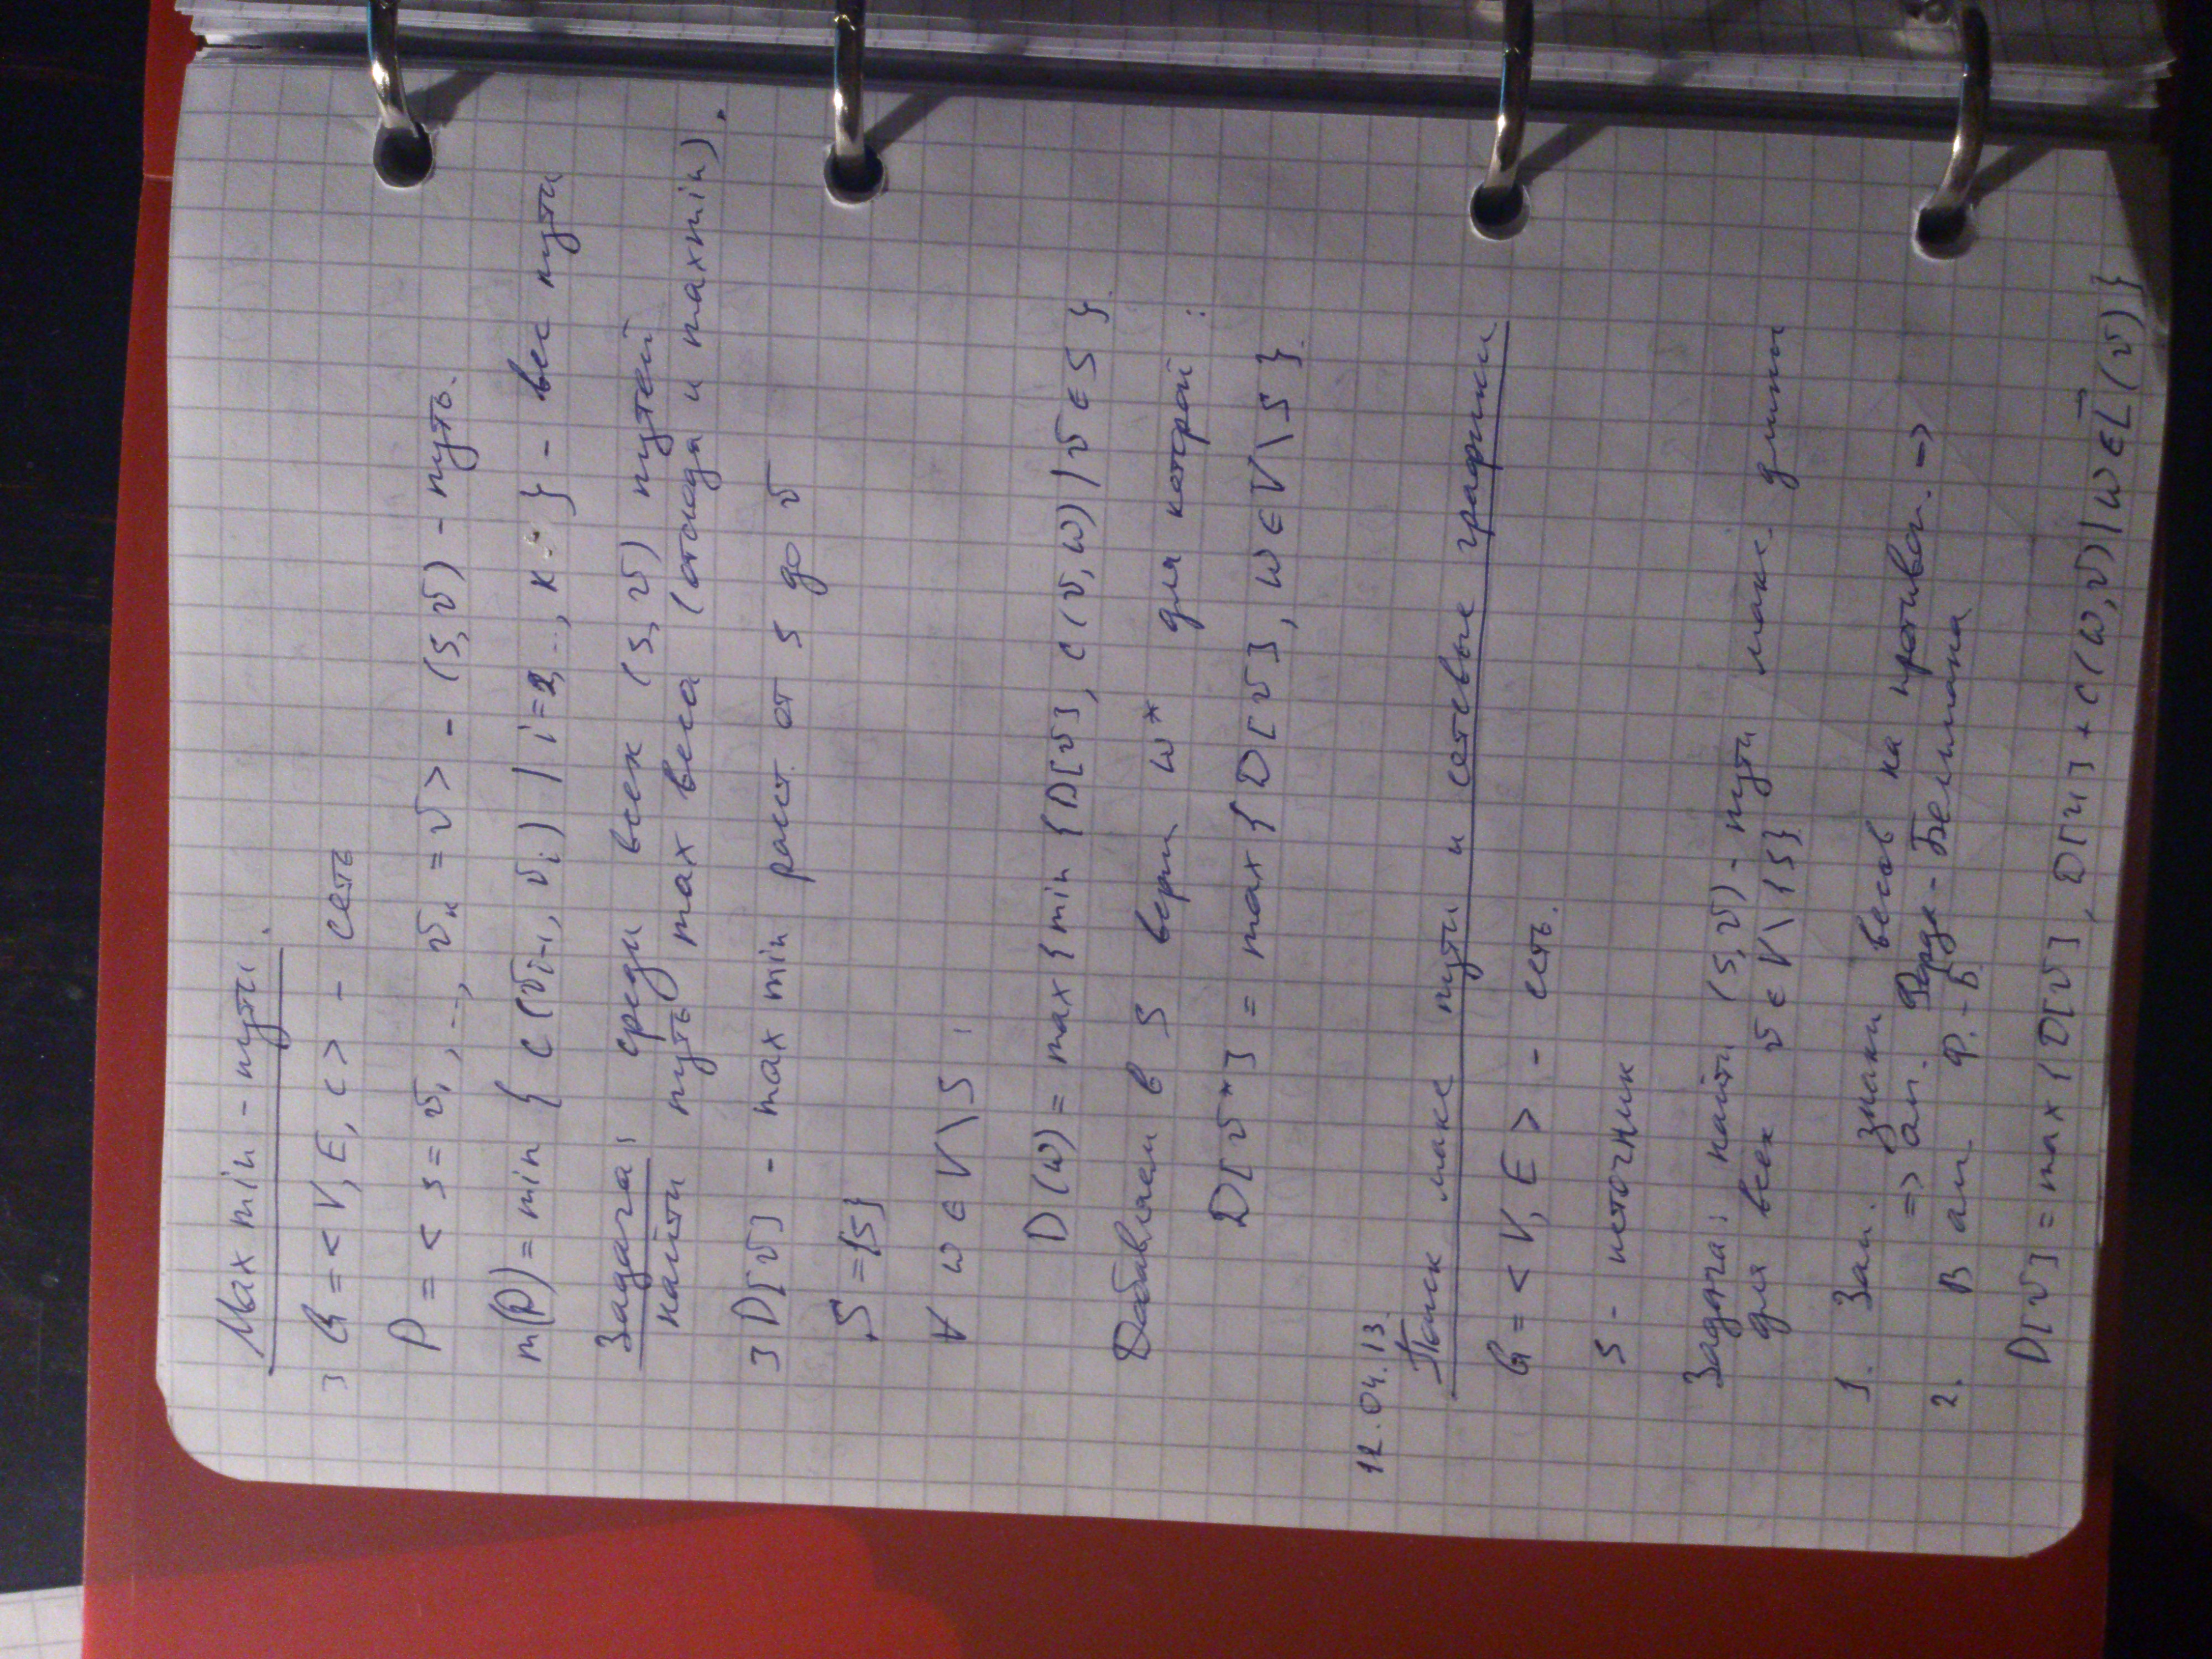 Max min - пути.
∃ G = < V, E, c > - сеть
P = < s = v₁, ..., vₖ = v > - (s, v) - путь.
m(P) = min { c(vᵢ₋₁, vᵢ) | i = 2, ..., k } - вес пути
Задача: среди всех (s, v) путей
найти путь max веса (отсюда и maxmin).
∃ D[v] - max min расст. от s до v
S = {s}
∀ w ∈ V \ S :
D(w) = max { min { D[v], c(v, w) | v ∈ S }
Добавляем в S верш w* для которой :
D[v*] = max { D[v], w ∈ V \ S }
12.04.13
Поиск макс пути и сетевые графики
G = < V, E > - сеть.
s - источник
Задача: найти (s, v) - пути макс. длины
для всех v ∈ V \ {s}
1. Зам. знаки весов на противоп. =>
=> ал. Форда - Беллмана
2. В алг Ф. - Б
D[v] = max { D[v], D[u] + c(w, v) | w ∈ L⃗(v) }